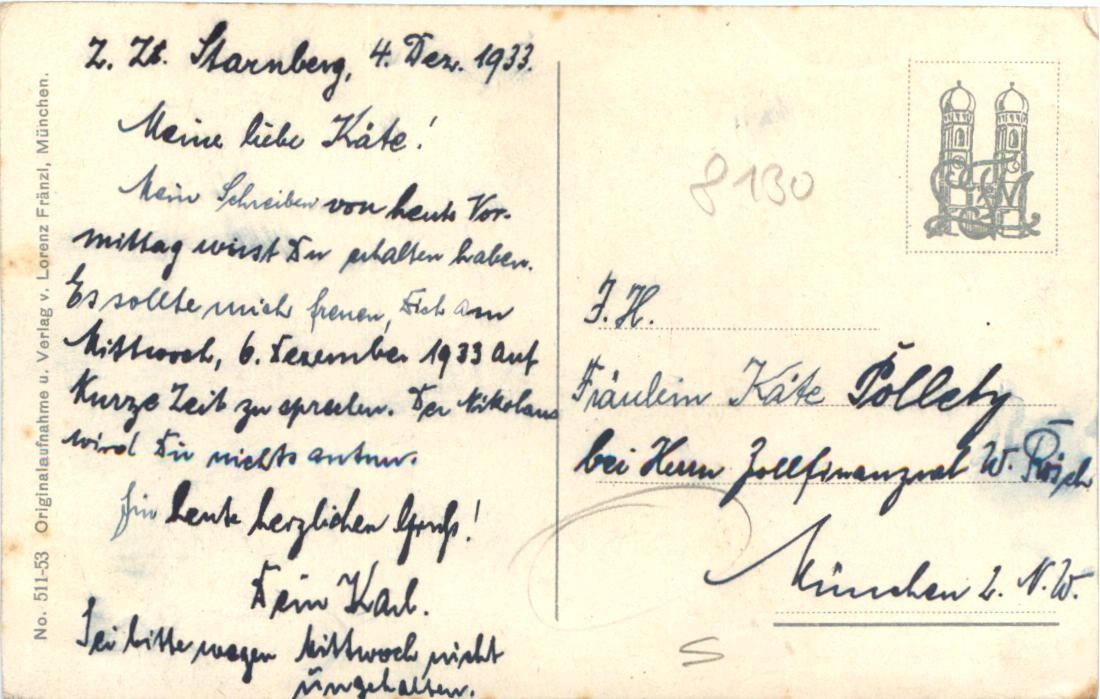 Z. Zt. Starnberg, 4. Dez. 1933.
Meine liebe Käte!
Mein Schreiben von heute Vor-
mittag wirst Du erhalten haben.
Es sollte mich freuen, Dich am
Mittwoch, 6. Dezember 1933 auf
Kurze Zeit zu sprechen. Der Nikolaus
wird Dir nichts antun.
Für heute herzlichen Gruß!
Dein Karl.
Sei bitte wegen Mittwoch nicht
ungehalten.
No. 511-53 Originalaufnahme u. Verlag v. Lorenz Fränzl, München.
8130
I. H.
Fräulein Käte
bei Herrn Zollfinanzrat W.
München 2. N. W.
S